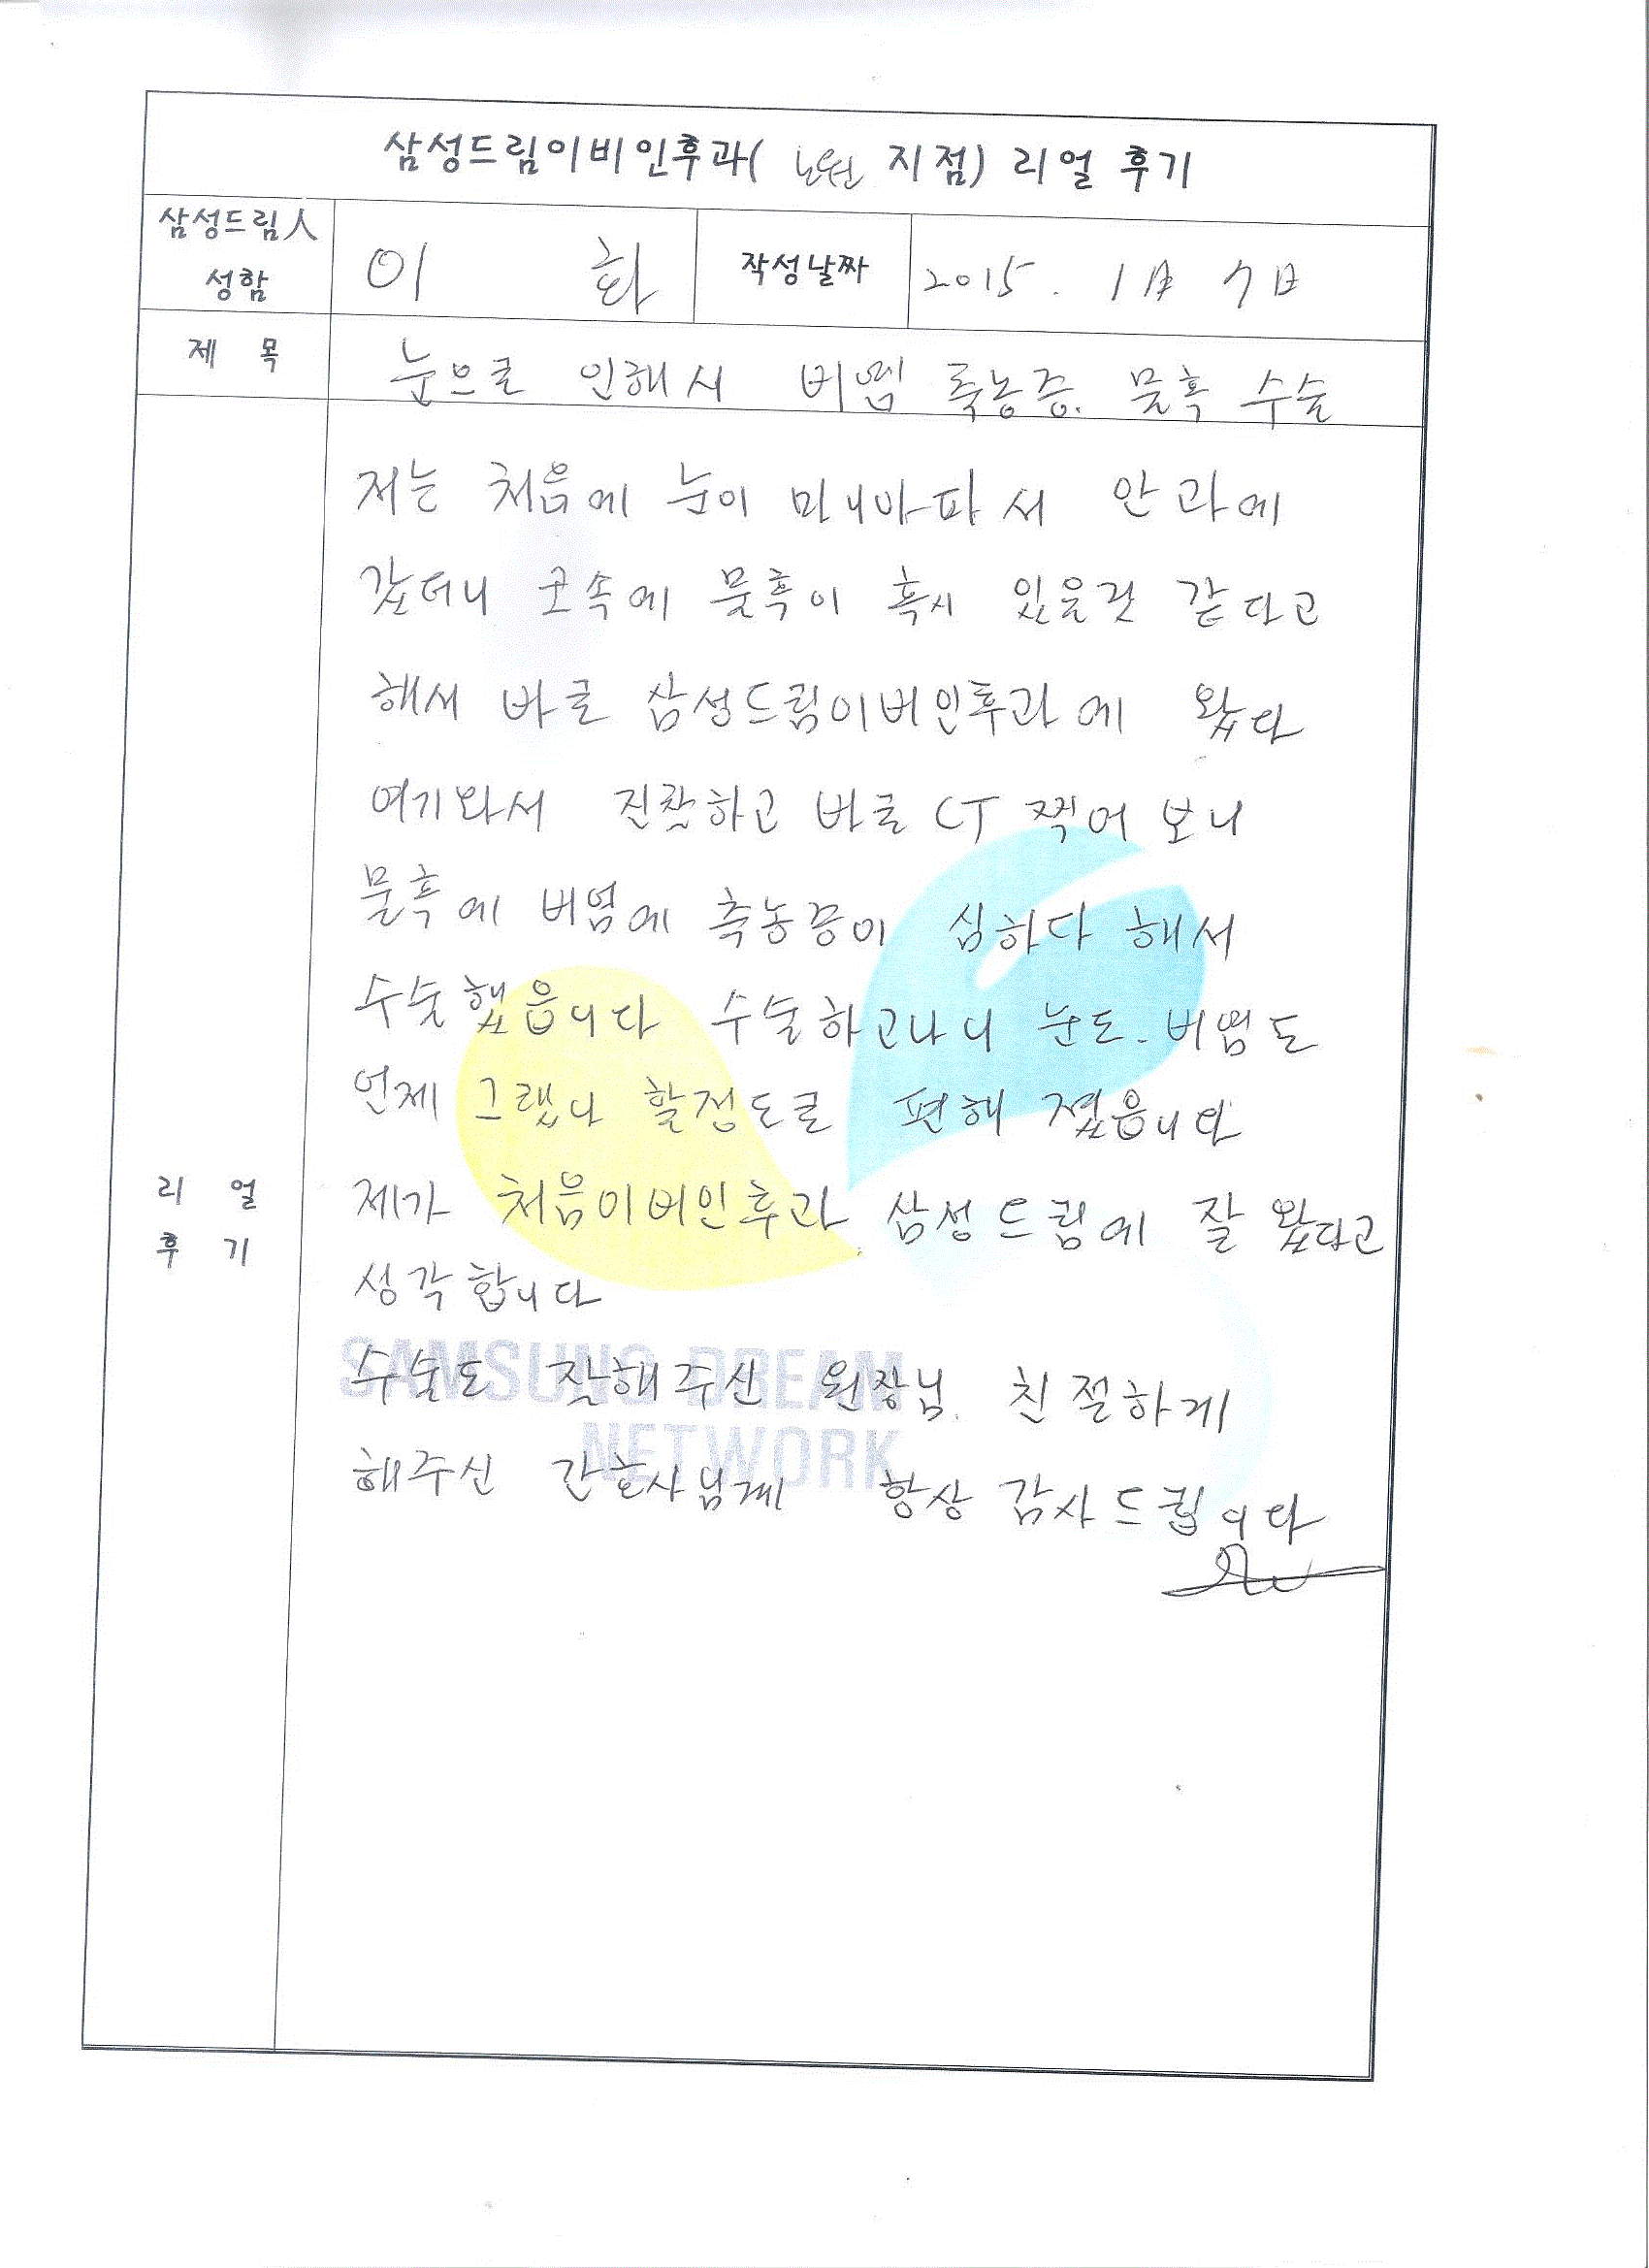 삼성드림이비인후과( 노원 지점) 리얼 후기
삼성드림人 성함
이 화
작성날짜
2015. 1月 7日
제 목
눈으로 인해서 비염 축농증. 물혹 수술
리 얼 후 기
저는 처음에 눈이 마니아파서 안과에
갔더니 코속에 물혹이 혹시 있을것 같다고
해서 바로 삼성드림이비인후과에 왔다
여기와서 진찰하고 바로 CT 찍어 보니
물혹에 비염에 축농증이 심하다 해서
수술했읍니다 수술하고나니 눈도. 비염도
언제 그랬나 할정도로 편해 졌읍니다
제가 처음이비인후과 삼성드림에 잘 왔다고
성각합니다
수술도 잘해주신 원장님. 친절하게
해주신 간호사님께 항상 감사드립니다
SAMSUNG DREAM
NETWORK